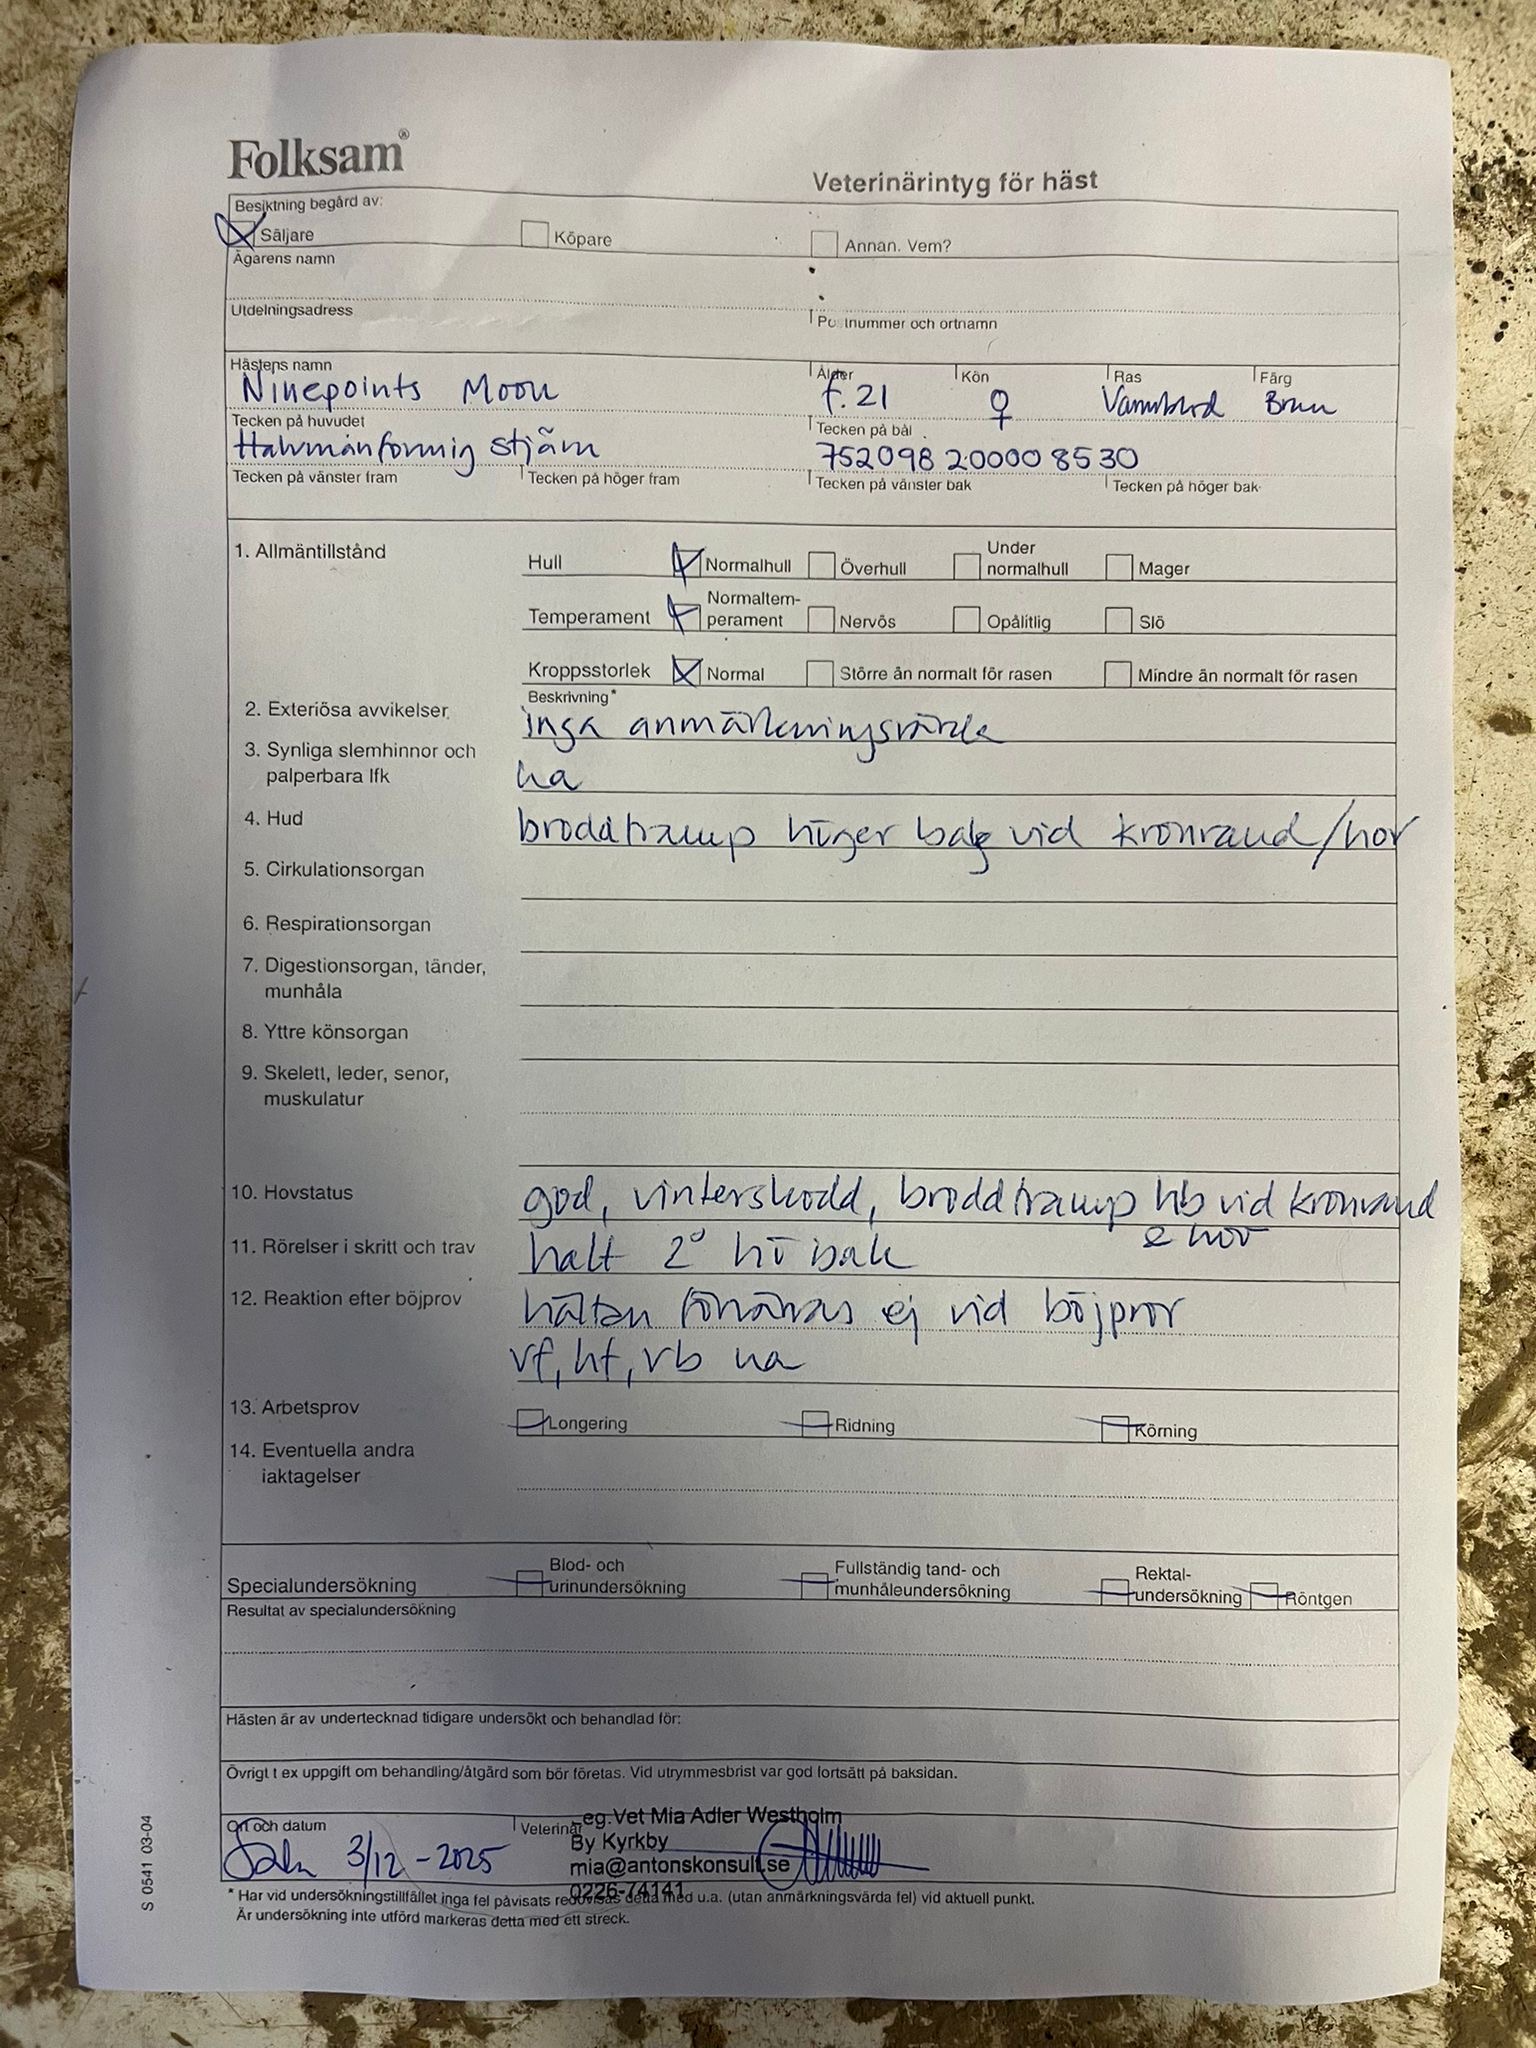 Folksam®
Veterinärintyg för häst
Besiktning begärd av:
Säljare Köpare Annan. Vem?
Ägarens namn
Utdelningsadress Postnummer och ortnamn
Hästens namn Ålder Kön Ras Färg
Ninepoints Moon f. 21 ♀ Varmblod Brun
Tecken på huvudet Tecken på bål
Halvmånformig stjärn 752098 20000 8530
Tecken på vänster fram Tecken på höger fram Tecken på vänster bak Tecken på höger bak
1. Allmäntillstånd
Hull Normalhull Överhull Under normalhull Mager
Temperament Normaltem-perament Nervös Opålitlig Slö
Kroppsstorlek Normal Större än normalt för rasen Mindre än normalt för rasen
Beskrivning*
2. Exteriösa avvikelser inga anmärkningsvärda
3. Synliga slemhinnor och
palperbara lfk ua
4. Hud broddtramp höger bak vid kronrand/hov
5. Cirkulationsorgan
6. Respirationsorgan
7. Digestionsorgan, tänder,
munhåla
8. Yttre könsorgan
9. Skelett, leder, senor,
muskulatur
10. Hovstatus god, vinterskodd, broddtramp hb vid kronrand
& hov
11. Rörelser i skritt och trav halt 2° hö bak
12. Reaktion efter böjprov hältan förvärras ej vid böjprov
vf, hf, vb ua
13. Arbetsprov Longering Ridning Körning
14. Eventuella andra
iaktagelser
Specialundersökning Blod- och urinundersökning Fullständig tand- och munhåleundersökning Rektal-undersökning Röntgen
Resultat av specialundersökning
Hästen är av undertecknad tidigare undersökt och behandlad för:
Övrigt t ex uppgift om behandling/åtgärd som bör företas. Vid utrymmesbrist var god fortsätt på baksidan.
Ort och datum Veterinär
3/12 - 2025
Leg.Vet Mia Adler Westholm
By Kyrkby
mia@antonskonsult.se
0226-74141
* Har vid undersökningstillfället inga fel påvisats redovisas detta med u.a. (utan anmärkningsvärda fel) vid aktuell punkt.
Är undersökning inte utförd markeras detta med ett streck.
S 0541 03-04